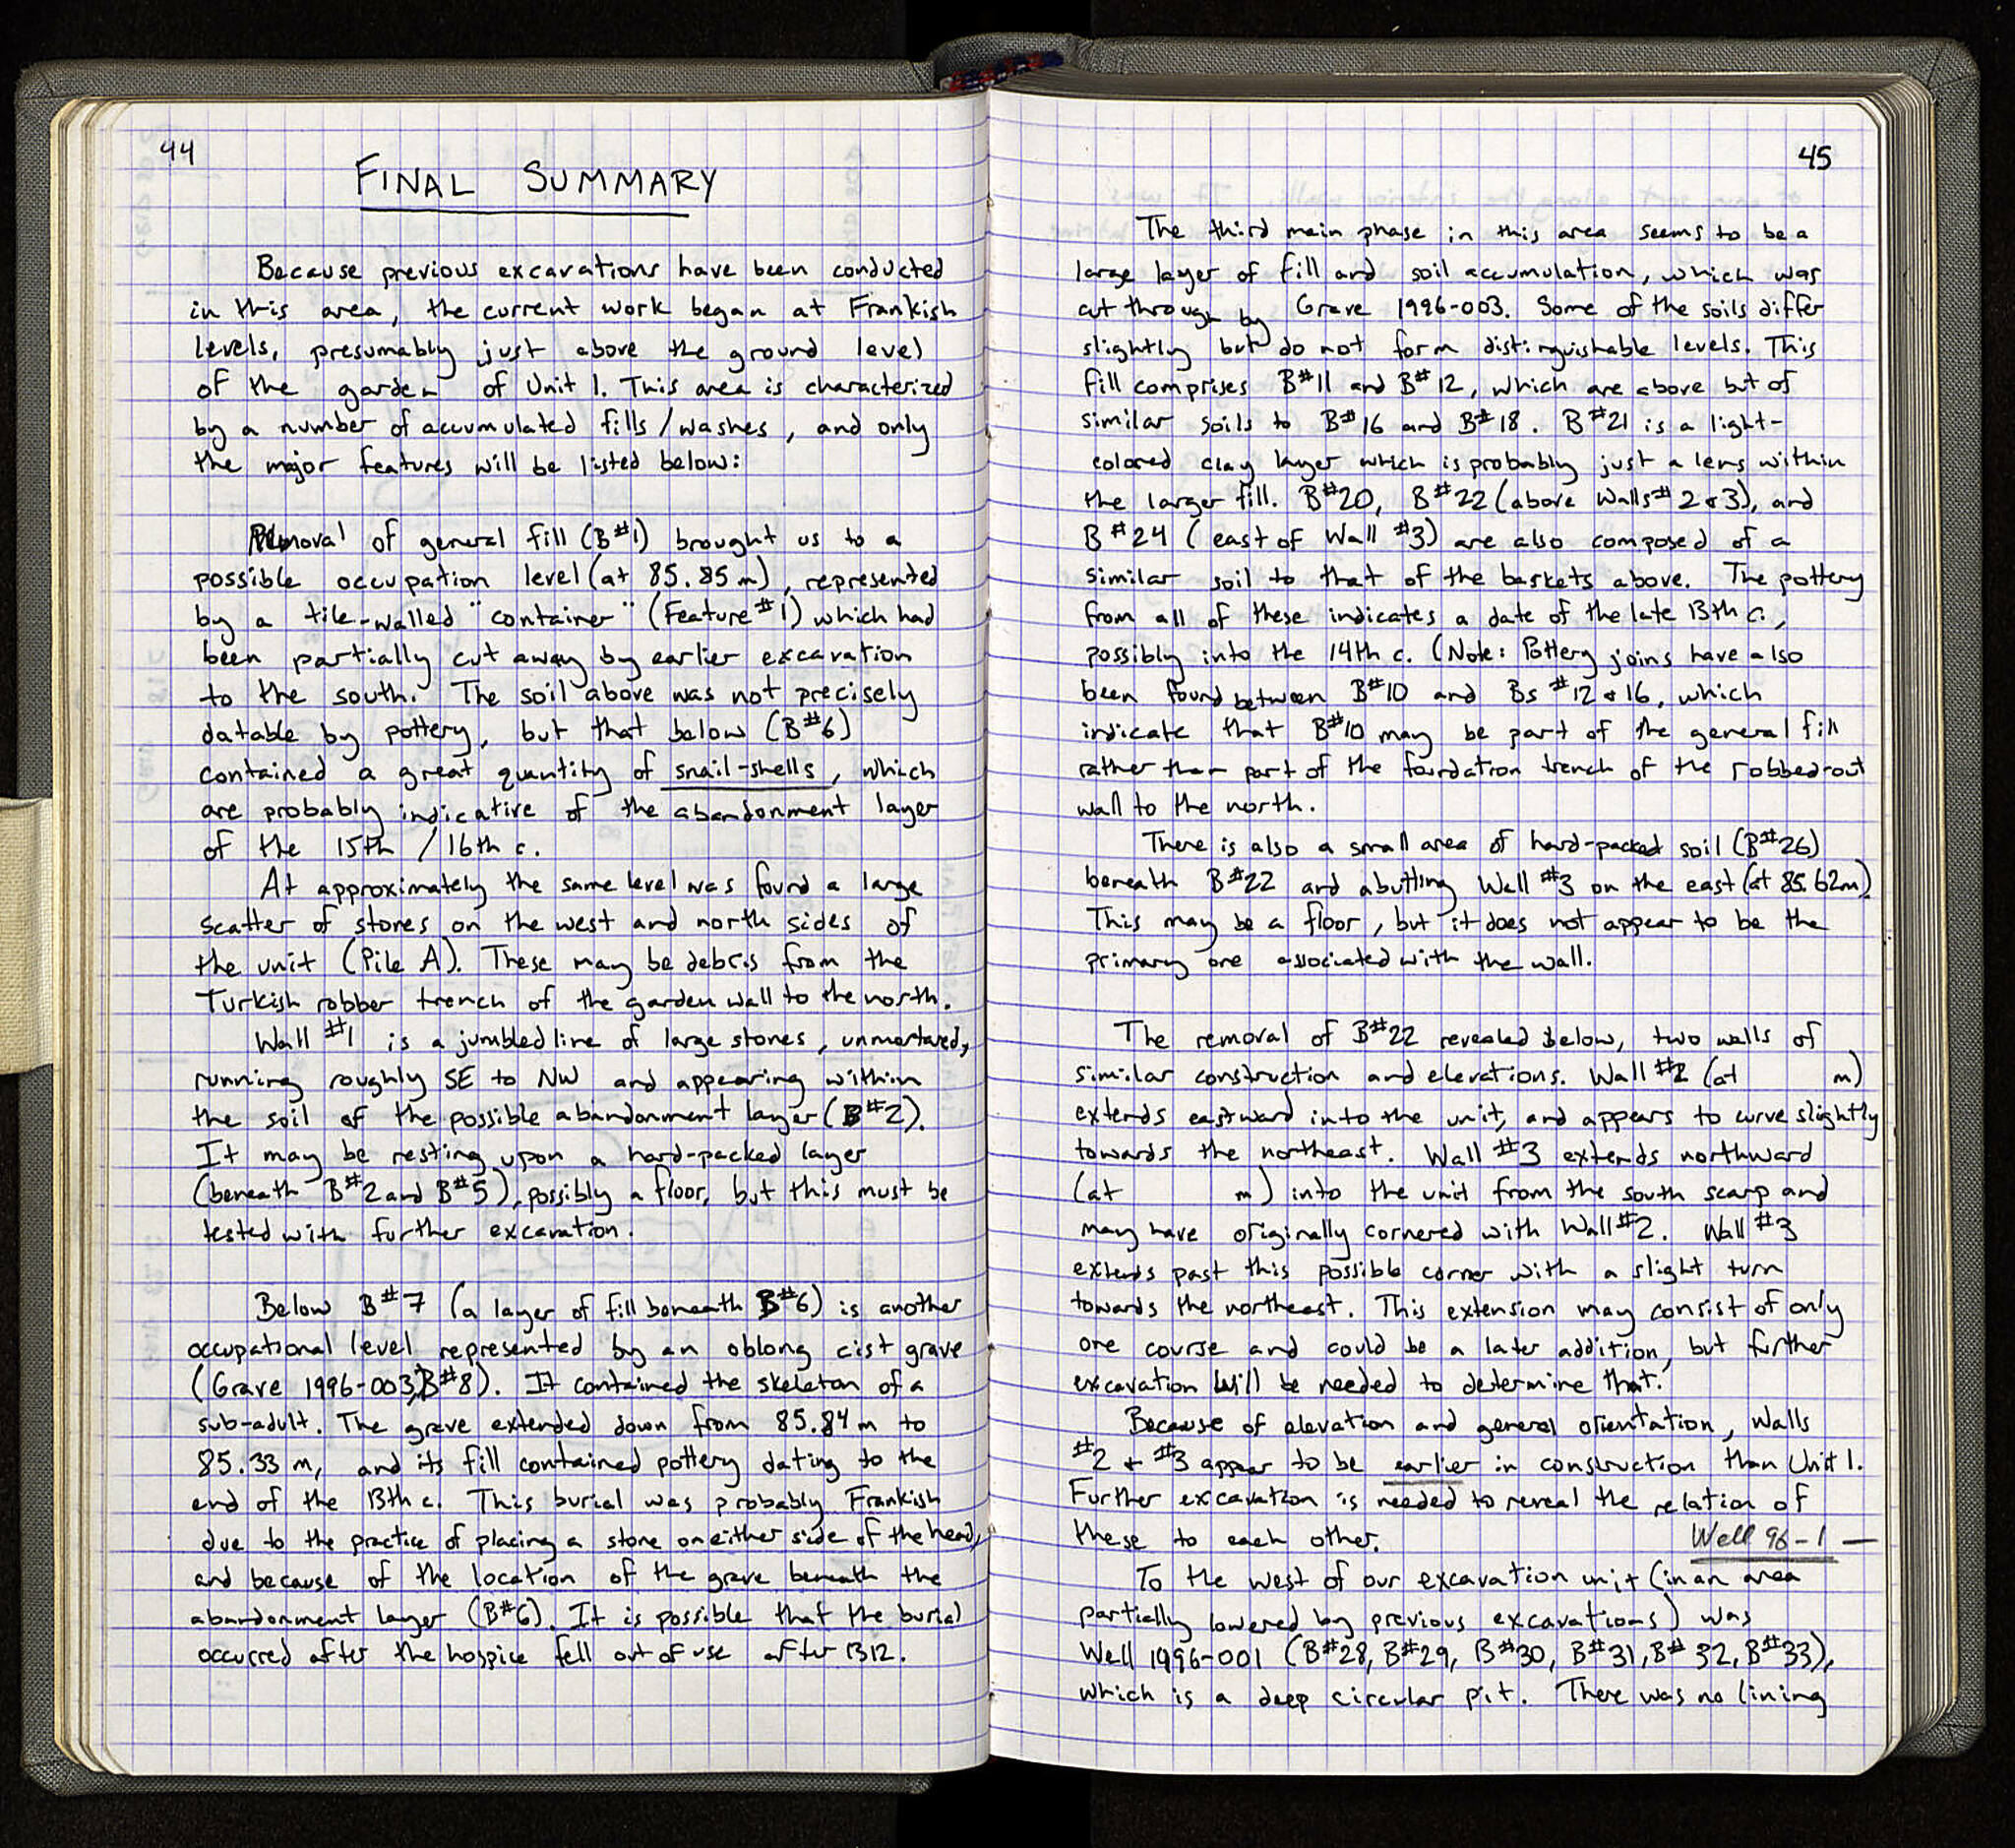 44
FINAL SUMMARY
Because previous excavations have been conducted
in this area, the current work began at Frankish
levels, presumably just above the ground level
of the garden of Unit 1. This area is characterized
by a number of accumulated fills/washes, and only
the major features will be listed below:
Removal of general fill (B#1) brought us to a
possible occupation level (at 85.85 m), represented
by a tile-walled "container" (Feature #1) which had
been partially cut away by earlier excavation
to the south. The soil above was not precisely
datable by pottery, but that below (B#6)
contained a great quantity of snail-shells, which
are probably indicative of the abandonment layer
of the 15th / 16th c.
At approximately the same level was found a large
scatter of stones on the west and north sides of
the unit (Pile A). These may be debris from the
Turkish robber trench of the garden wall to the north.
Wall #1 is a jumbled line of large stones, unmortared,
running roughly SE to NW and appearing within
the soil of the possible abandonment layer (B#2).
It may be resting upon a hard-packed layer
(beneath B#2 and B#5), possibly a floor, but this must be
tested with further excavation.
Below B#7 (a layer of fill beneath B#6) is another
occupational level represented by an oblong cist grave
(Grave 1996-003, B#8). It contained the skeleton of a
sub-adult. The grave extended down from 85.84 m to
85.33 m, and its fill contained pottery dating to the
end of the 13th c. This burial was probably Frankish
due to the practice of placing a stone on either side of the head,
and because of the location of the grave beneath the
abandonment layer (B#6). It is possible that the burial
occurred after the hospice fell out of use after 1312.
45
The third main phase in this area seems to be a
large layer of fill and soil accumulation, which was
cut through by Grave 1996-003. Some of the soils differ
slightly but do not form distinguishable levels. This
fill comprises B#11 and B#12, which are above but of
similar soils to B#16 and B#18. B#21 is a light-
colored clay layer which is probably just a lens within
the larger fill. B#20, B#22 (above Walls # 2 & 3), and
B#24 (east of Wall #3) are also composed of a
similar soil to that of the baskets above. The pottery
from all of these indicates a date of the late 13th c.,
possibly into the 14th c. (Note: Pottery joins have also
been found between B#10 and Bs #12 & 16, which
indicate that B#10 may be part of the general fill
rather than part of the foundation trench of the robbed-out
wall to the north.
There is also a small area of hard-packed soil (B#26)
beneath B#22 and abutting Wall #3 on the east (at 85.62m).
This may be a floor, but it does not appear to be the
primary one associated with the wall.
The removal of B#22 revealed below, two walls of
similar construction and elevations. Wall #2 (at m)
extends eastward into the unit, and appears to curve slightly
towards the northeast. Wall #3 extends northward
(at m) into the unit from the south scarp and
may have originally cornered with Wall #2. Wall #3
extends past this possible corner with a slight turn
towards the northeast. This extension may consist of only
one course and could be a later addition, but further
excavation will be needed to determine that.
Because of elevation and general orientation, Walls
#2 + #3 appear to be earlier in construction than Unit 1.
Further excavation is needed to reveal the relation of
these to each other.
Well 96-1 —
To the west of our excavation unit (in an area
partially lowered by previous excavations) was
Well 1996-001 (B#28, B#29, B#30, B#31, B#32, B#33),
which is a deep circular pit. There was no lining